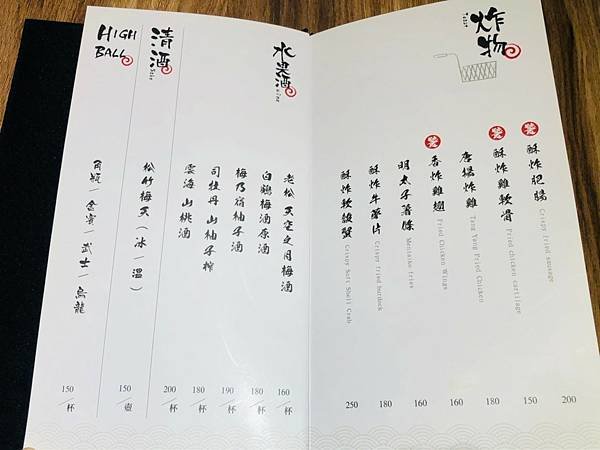 炸物
酥炸肥腸
Crispy fried sausage
200
酥炸雞軟骨
Fried chicken cartilage
150
唐揚炸雞
Tang Yang Fried Chicken
180
香炸雞翅
Fried Chicken Wings
160
明太子薯條
Mentaiko fries
160
酥炸牛蒡片
Crispy fried burdock
180
酥炸軟殼蟹
Crispy Soft Shell Crab
250
水果酒
Wine
老松 天空之月梅酒
160/杯
白鶴梅酒原酒
180/杯
梅乃宿柚子酒
190/杯
司牡丹山柚子搾
180/杯
雲海山桃酒
200/杯
清酒
Sake
松竹梅天(冰|溫)
150/壺
HIGH
BALL
角瓶|金賓|武士|烏龍
150/杯